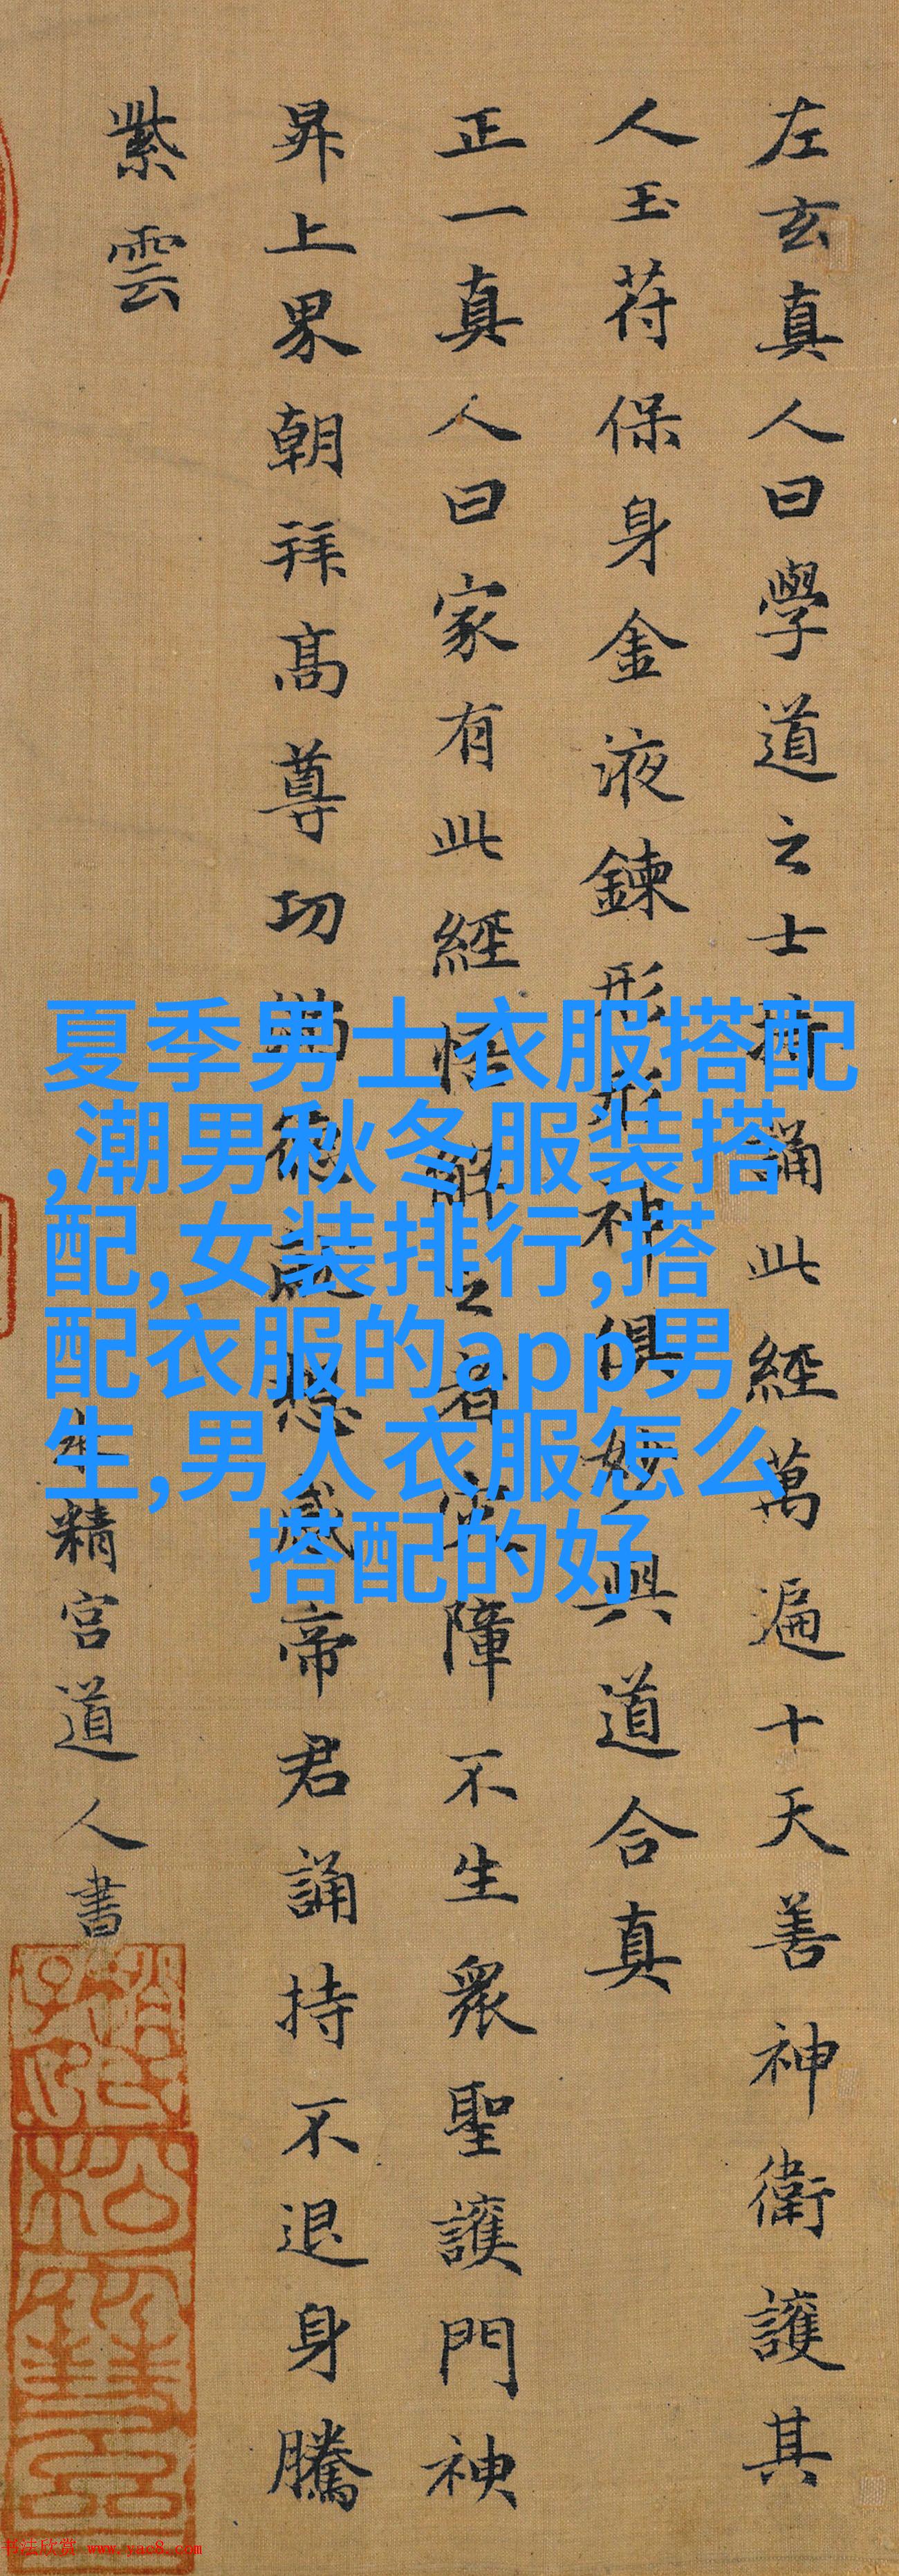 左玄真人曰學道之士持誦此經萬遍十天善神衛護其
人玉苻保身金液鍊形形神俱妙與道合真
正一真人曰家有此經悟解之者災障不生衆聖護門神
昇上界朝拜高尊功滿德就想感帝君誦持不退身騰
紫雲
水精宮道人書
夏季男士衣服搭配
,潮男秋冬服装搭
配,女装排行,搭
配衣服的app男
生,男人衣服怎么
搭配的好
书法欣赏 www.yac8.com